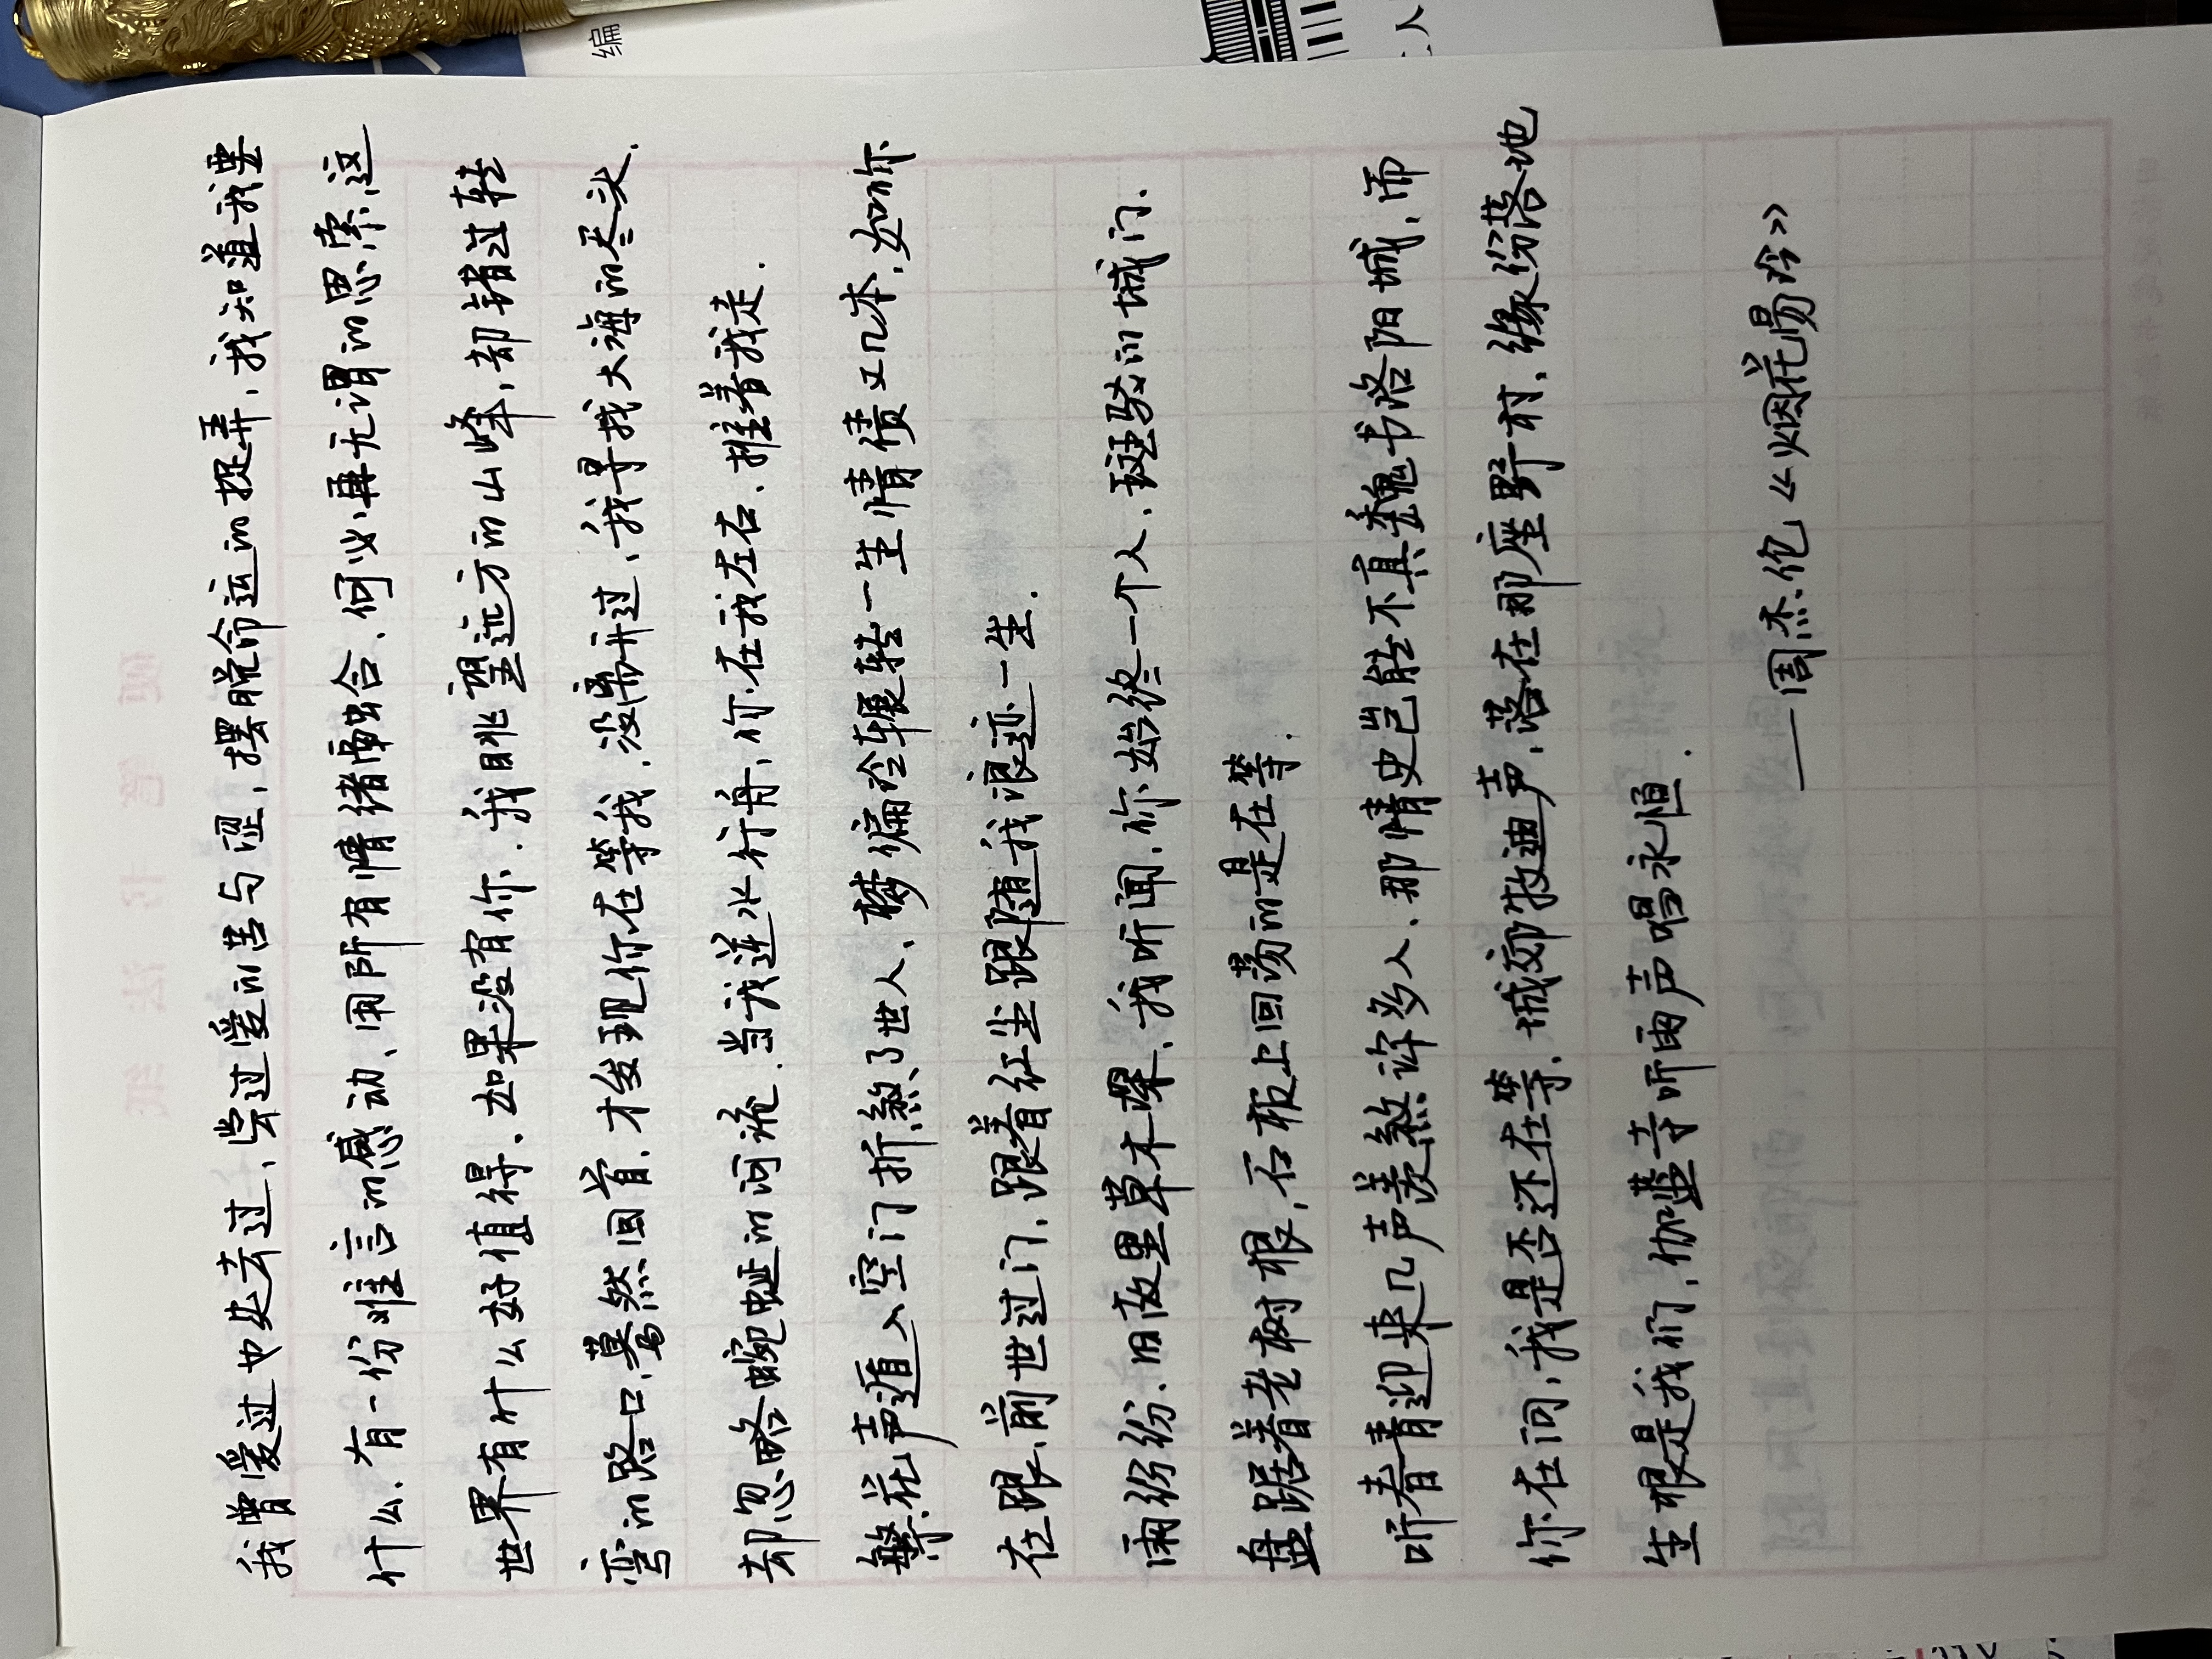 我曾爱过也失去过,尝过爱的苦与涩,摆脱命运的捉弄,我知道我要
什么.有一份难言的感动、用所有情绪融合、何必再无谓的思索,这
世界有什么好值得、如果没有你.我眺望远方的山峰,却错过转
弯的路口,蓦然回首.才发现你在等我.没离开过,我寻找大海的尽头.
却忽略蜿蜒的河流.当我逆水行舟,你在我左右.推着我走.
繁花声遁入空门折煞了世人、梦偏冷辗转一生情债又几本.如你
在跟、前世过门.跟着红尘跟随我浪迹一生.
雨纷纷.旧故里草木深.我听闻,你始终一个人.斑驳的城门.
盘踞着老树根,石板上回荡的是在等.
听青春迎来几声羡煞许多人、那情史岂能不真魏书洛阳城,而
你在问,我是否还在等.城郊牧迪声.落在那座野村.缘份落地
生根是我们,伽蓝寺听雨声唱永恒.
——周杰伦《烟花易冷》
编